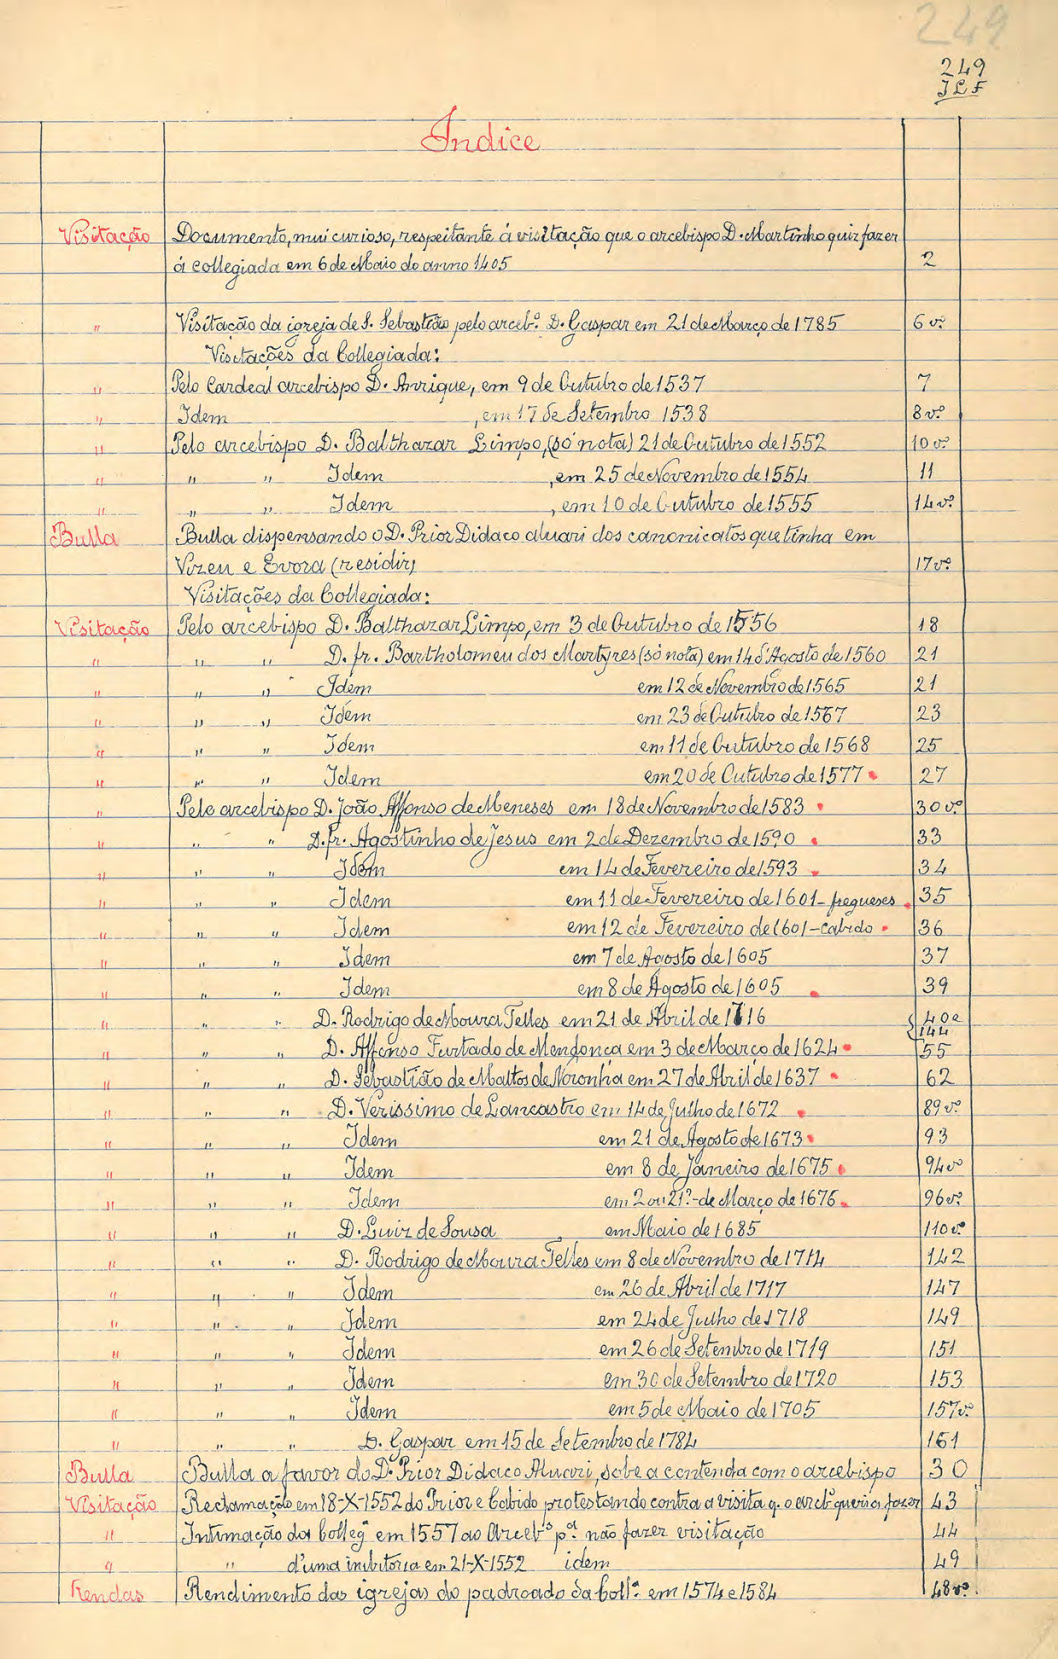 249
249
JLF
Indice
Visitação Documento, mui curioso, respeitante á visitação que o arcebispo D. Martinho quiz fazer
á collegiada em 6 de Maio do anno 1405 2
" Visitação da igreja de S. Sebastião pelo arcebº. D. Gaspar em 21 de Março de 1785 6 vº.
Visitações da Collegiada:
" Pelo Cardeal arcebispo D. Anrique, em 9 de Outubro de 1537 7
" Idem , em 17 de Setembro 1538 8 vº.
" Pelo arcebispo D. Balthazar Limpo, (só nota) 21 de Outubro de 1552 10 vº
" " " Idem , em 25 de Novembro de 1554 11
" " " Idem , em 10 de Outubro de 1555 14 vº.
Bulla Bulla dispensando o D. Prior Didaco aluari dos canonicatos que tinha em
Vizeu e Evora (residir) 17 vº.
Visitações da Collegiada:
Visitação Pelo arcebispo D. Balthazar Limpo, em 3 de Outubro de 1556 18
" " " D. fr. Bartholomeu dos Martyres (só nota) em 14 d'Agosto de 1560 21
" " " Idem em 12 de Novembro de 1565 21
" " " Idem em 23 de Outubro de 1567 23
" " " Idem em 11 de Outubro de 1568 25
" " " Idem em 20 de Outubro de 1577 27
" Pelo arcebispo D. João Affonso de Meneses em 18 de Novembro de 1583 30 vº.
" " " D. fr. Agostinho de Jesus em 2 de Dezembro de 1590 33
" " " Idem em 14 de Fevereiro de 1593 34
" " " Idem em 11 de Fevereiro de 1601 - fregueses 35
" " " Idem em 12 de Fevereiro de 1601 - cabido 36
" " " Idem em 7 de Agosto de 1605 37
" " " Idem em 8 de Agosto de 1605 39
" " " D. Rodrigo de Moura Telles em 21 de Abril de 1716 { 40 e
144
" " " D. Affonso Furtado de Mendonça em 3 de Março de 1624 55
" " " D. Sebastião de Mattos de Noronha em 27 de Abril de 1637 62
" " " D. Verissimo de Lancastro em 14 de Julho de 1672 89 vº.
" " " Idem em 21 de Agosto de 1673 93
" " " Idem em 8 de Janeiro de 1675 94 vº
" " " Idem em 2 ou 21?- de Março de 1676 96 vº.
" " " D. Luiz de Sousa , em Maio de 1685 110 vº
" " " D. Rodrigo de Moura Telles em 8 de Novembro de 1714 142
" " " Idem em 26 de Abril de 1717 147
" " " Idem em 24 de Julho de 1718 149
" " " Idem em 26 de Setembro de 1719 151
" " " Idem em 30 de Setembro de 1720 153
" " " Idem em 5 de Maio de 1705 157 vº.
" " " D. Gaspar em 15 de Setembro de 1784 161
Bulla Bulla a favor do D. Prior Didaco Alucari, sobe a contenda com o arcebispo 30
Visitação Reclamação em 18-X-1552 do Prior e Cabido protestando contra a visita q. o arcbº queria fazer 43
" Intimação da Collegª em 1557 ao Arcebº pª. não fazer visitação 44
" " d'uma inibitoria em 21-X-1552 idem 49
Rendas Rendimento das igrejas do padroado da Collª. em 1574 e 1584 48 vº.